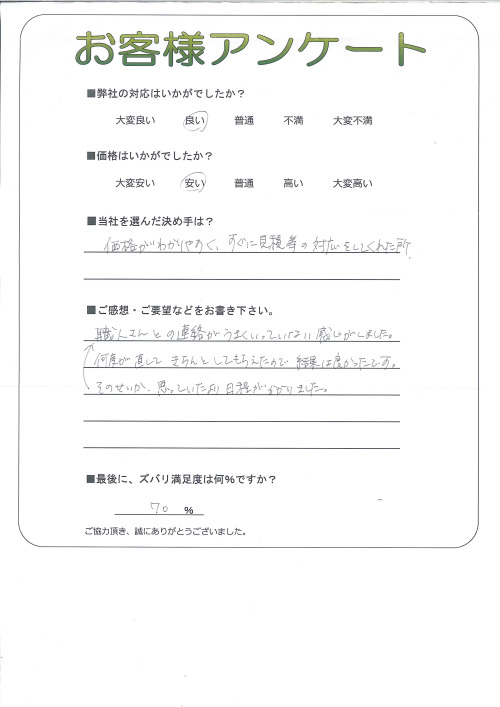 お客様アンケート
■弊社の対応はいかがでしたか？
大変良い 良い 普通 不満 大変不満
■価格はいかがでしたか？
大変安い 安い 普通 高い 大変高い
■当社を選んだ決め手は？
価格がわかりやすく、すぐに見積等の対応をしてくれた所
■ご感想・ご要望などをお書き下さい。
職人さんとの連絡がうまくいっていない感じがしました。
何度か直してきちんとしてもらえたので結果は良かったです。
そのせいか、思っていたより日程がかかりました。
■最後に、ズバリ満足度は何%ですか？
70 %
ご協力頂き、誠にありがとうございました。